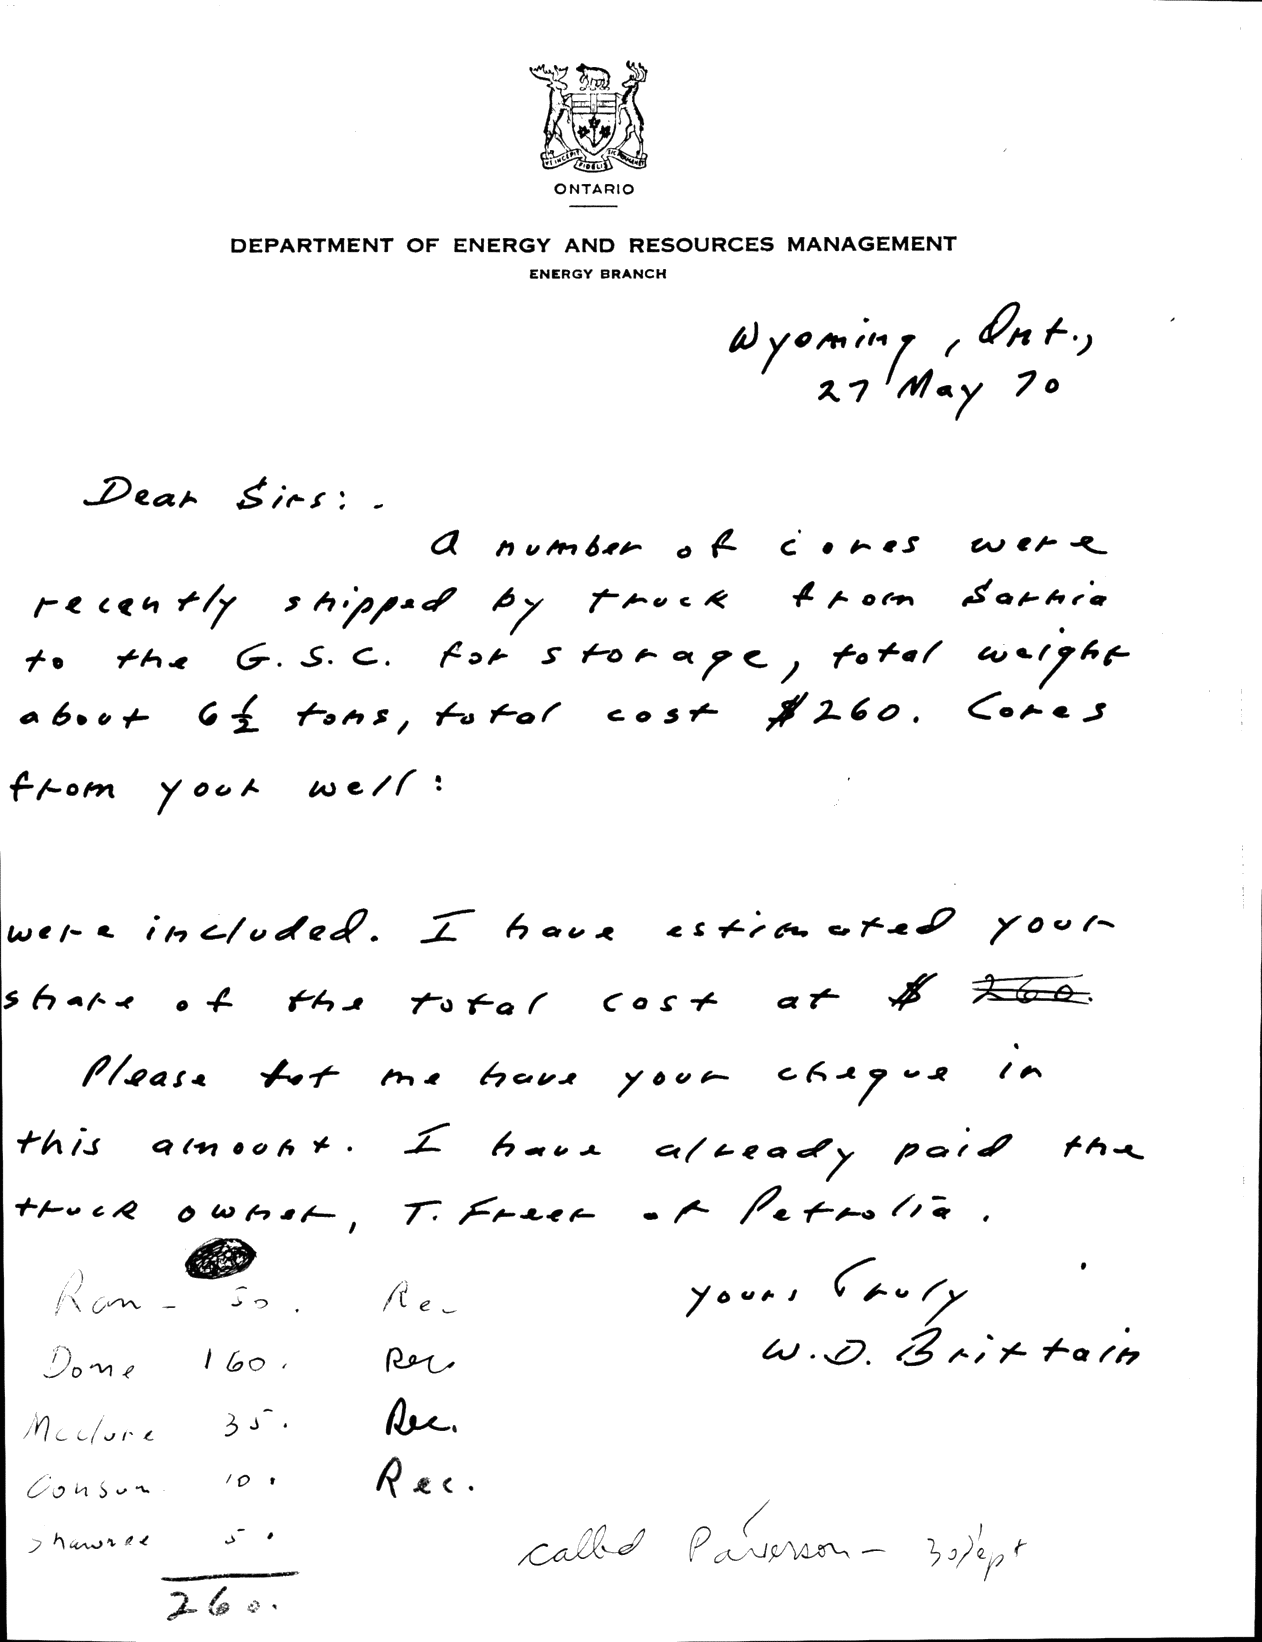 UT INCEPIT FIDELIS SIC PERMANET
ONTARIO
DEPARTMENT OF ENERGY AND RESOURCES MANAGEMENT
ENERGY BRANCH
Wyoming, Ont.,
27 May 70
Dear Sirs:.
A number of cores were
recently shipped by truck from Sarnia
to the G.S.C. for storage, total weight
about 6½ tons, total cost $260. Cores
from your well:
were included. I have estimated your
share of the total cost at $ 260.
Please let me have your cheque in
this amount. I have already paid the
truck owner, T. Freer of Petrolia.
Yours Truly
W.D. Brittain
Ram - 50. Rec
Dome 160. Rec
McClure 35. Rec.
Consum 10. Rec.
5.
260.
called Paterson - 30 Sept